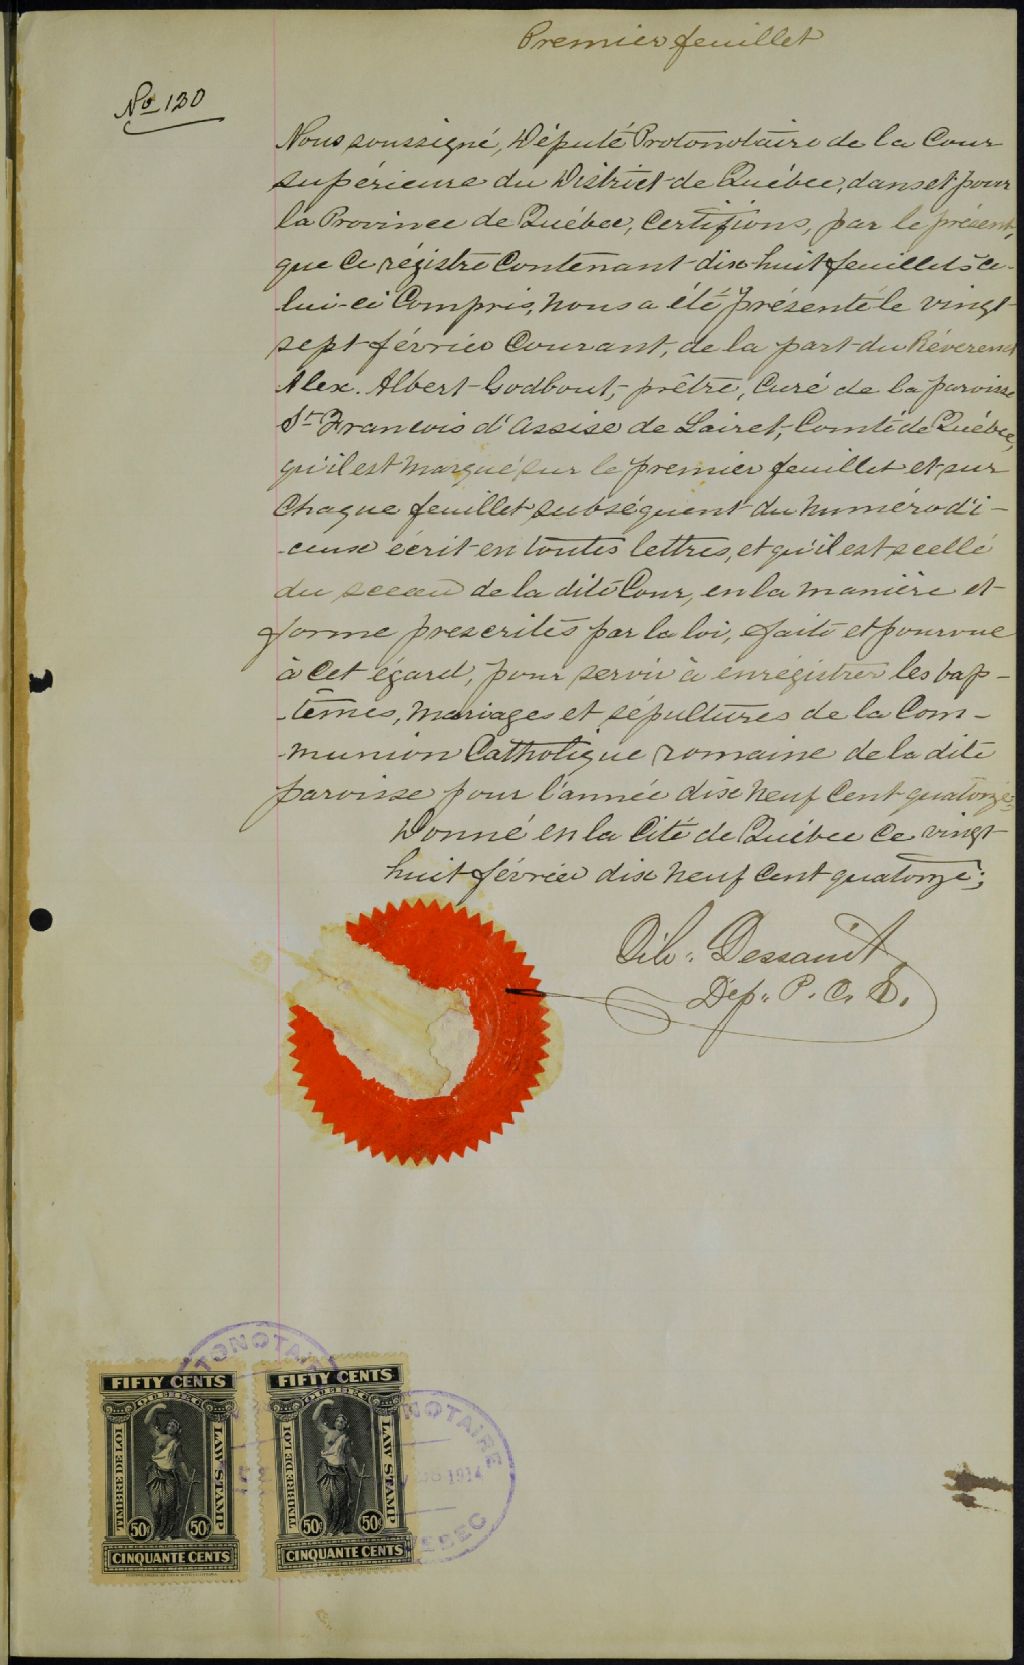 Premier feuillet
No 130
Nous soussigné, Député Protonotaire de la Cour
supérieure du District de Québec, dans et pour
la Province de Québec, Certifions, par le présent,
que ce régistre contenant dix-huit feuillets ce-
lui-ci Compris, nous a été présenté le vingt
sept février Courant, de la part du Révérend
Alex. Albert Godbout, prêtre, Curé de la paroisse
St Francois d'Assise de Lairet, Comté de Québec,
qu'il est marqué sur le premier feuillet et sur
Chaque feuillet subséquent du numéro d'i-
-ceux écrit en toutes lettres, et qu'il est scellé
du sceau de la dite Cour, en la manière et
forme prescrites par la loi, faite et pourvue
à cet égard, pour servir à enrégistrer les bap-
-têmes, mariages et sépultures de la Com-
-munion Catholique romaine de la dite
paroisse pour l'année dix neuf Cent quatorze;
Donné en la Cité de Québec ce vingt
huit février dix neuf Cent quatorze;
Dessault
Dép. P. C. S.
TONOTAI
FIFTY CENTS
QUEBEC
TIMBRE DE LOI
LAW STAMP
50¢ 50¢
CINQUANTE CENTS
FIFTY CENTS
QUEBEC
TIMBRE DE LOI
LAW STAMP
50¢ 50¢
CINQUANTE CENTS
NOTAIRE
1914
EBEC